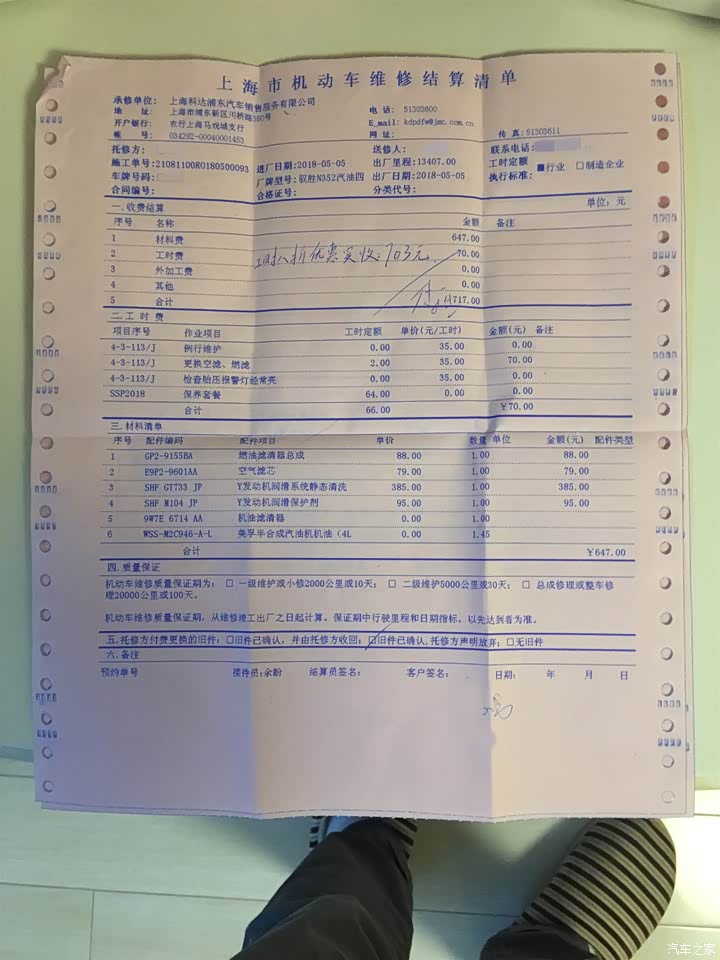 上海市机动车维修结算清单
承修单位: 上海科达浦东汽车销售服务有限公司
地 址: 上海市浦东新区川桥路360号 电 话: 51303600
开户银行: 农行上海马戏城支行 E_mail: kdpdfw@jmc.com.cn
帐 号: 034282-00040001453 网址: 传 真: 51303611
托修方: 送修人: 联系电话:
施工单号: 21081100RO180500093 进厂日期: 2018-05-05 出厂里程: 13407.00 工时定额 ■行业 □制造企业
车牌号码: 厂牌型号: 驭胜N352汽油四 出厂日期: 2018-05-05 执行标准:
合同编号: 合格证号: 分类代号:
一.收费结算 单位: 元
序号 名称 金额 备注
1 材料费 647.00
2 工时费 70.00
工时八折优惠实收: 703元
3 外加工费 0.00
4 其他 0.00
5 合计 717.00
二.工 时 费
项目序号 作业项目 工时定额 单价(元/工时) 金额(元) 备注
4-3-113/J 例行维护 0.00 35.00 0.00
4-3-113/J 更换空滤、燃滤 2.00 35.00 70.00
4-3-113/J 检查胎压报警灯经常亮 0.00 35.00 0.00
SSP2018 保养套餐 64.00 0.00 0.00
合计 66.00 ¥70.00
三.材料清单
序号 配件编码 配件项目 单价 数量 单位 金额(元) 配件类型
1 GP2-9155BA 燃油滤清器总成 88.00 1.00 88.00
2 E9P2-9601AA 空气滤芯 79.00 1.00 79.00
3 SHF GY733 JP Y发动机润滑系统静态清洗 385.00 1.00 385.00
4 SHF M104 JP Y发动机润滑保护剂 95.00 1.00 95.00
5 9W7E 6714 AA 机油滤清器 0.00 1.00
6 WSS-M2C946-A-L 美孚半合成汽油机机油（4L 0.00 1.45
合计 ¥647.00
四.质量保证
机动车维修质量保证期为: □ 一级维护或小修2000公里或10天; □ 二级维护5000公里或30天; □ 总成修理或整车修
理20000公里或100天。
机动车维修质量保证期，从维修竣工出厂之日起计算。保证期中行驶里程和日期指标，以先达到者为准。
五.托修方付费更换的旧件: □旧件已确认，并由托修方收回; □旧件已确认,托修方声明放弃; □无旧件
六.备注
预约单号 接待员:余盼 结算员签名: 客户签名: 日期: 年 月 日
汽车之家